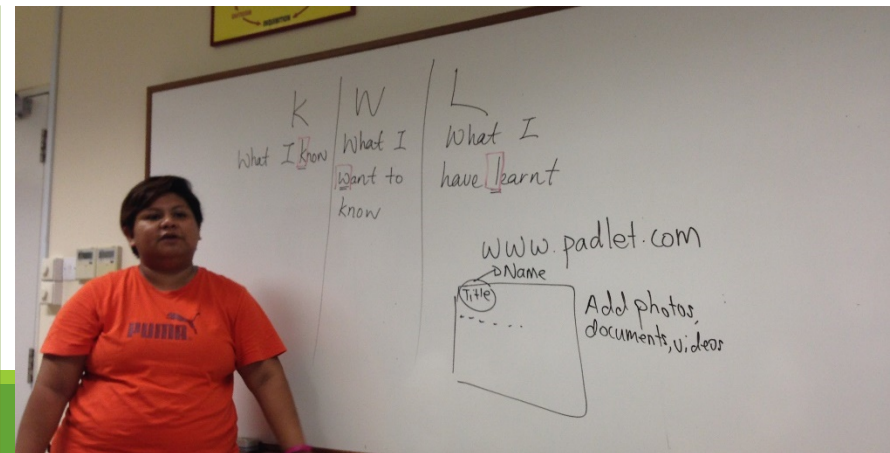 K
What I know
W
What I
want to
know
L
What I
have learnt
www.padlet.com
Name
Title
Add photos,
documents, videos
PUMA